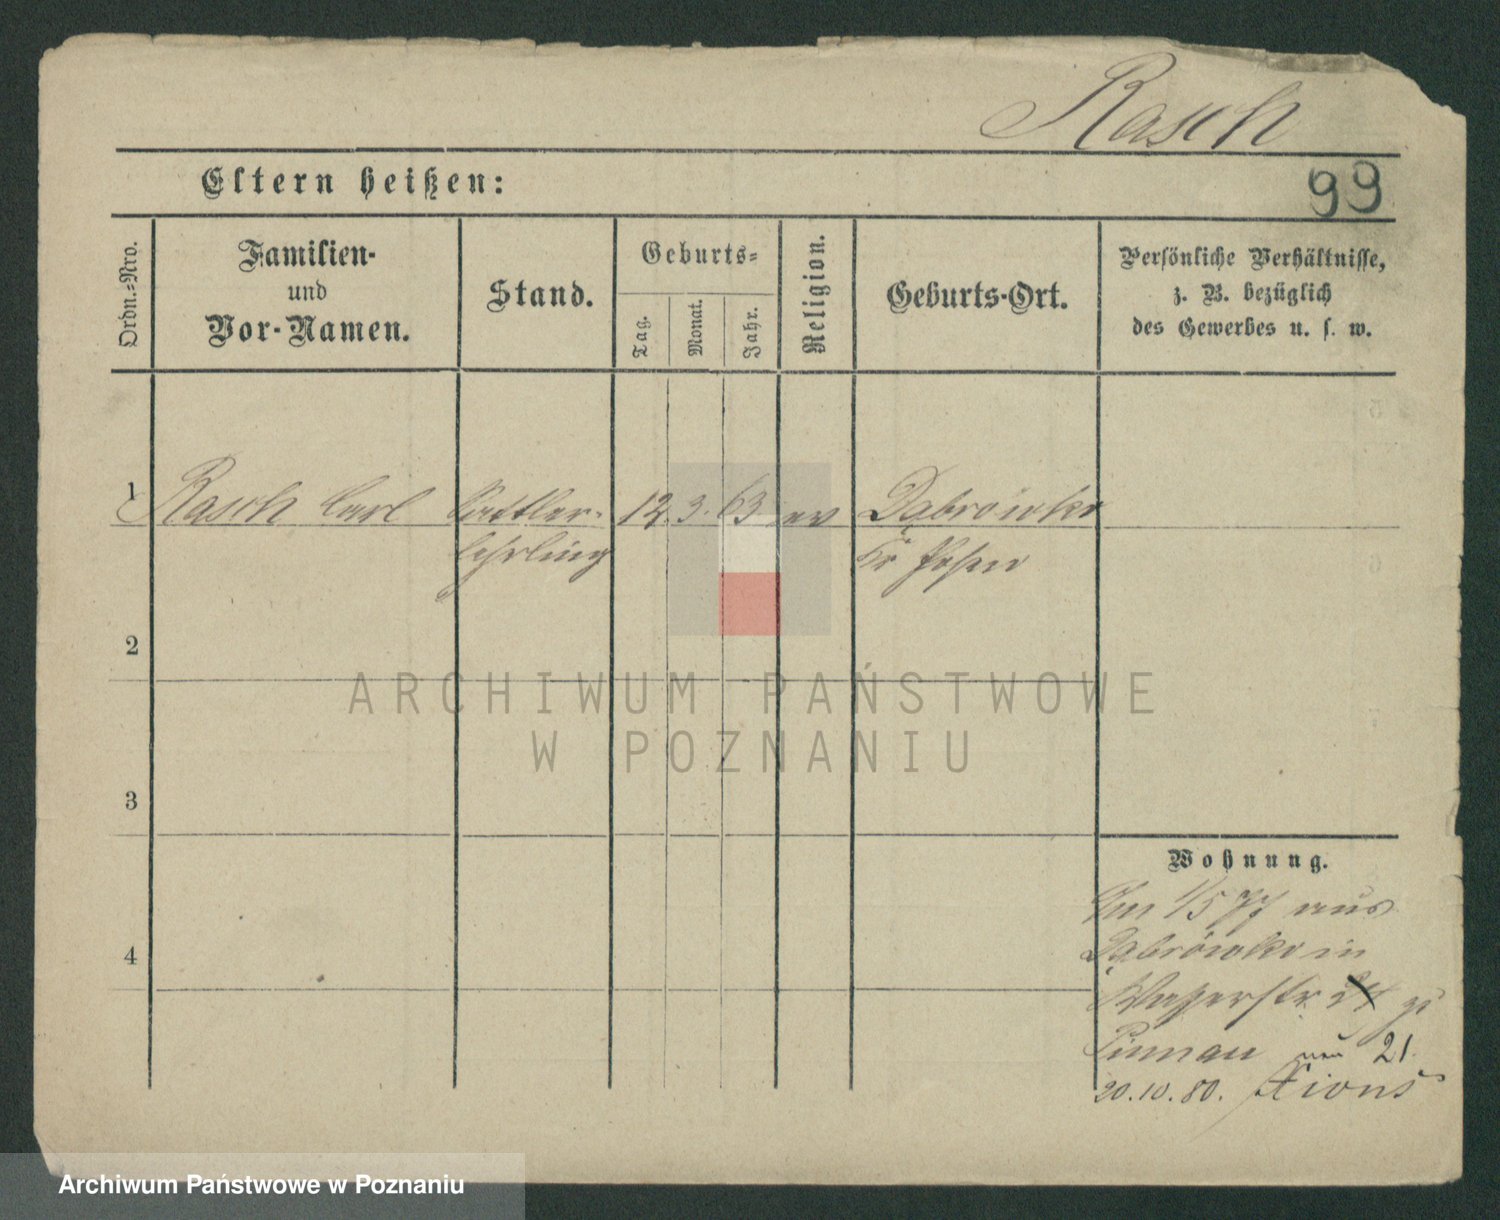 Rasch
Eltern heißen:
99
Ordn.-Nro.
Familien-
und
Vor-Namen.
Stand.
Geburts-
Tag.
Monat.
Jahr.
Religion.
Geburts-Ort.
Persönliche Verhältnisse,
z. B. bezüglich
des Gewerbes u. s. w.
1 Rasch Carl Sattler- 12. 3. 63 ev Dąbrówka
lehrling Kr Posen
2
3
4
Wohnung.
Am 1/5 77 aus
Dąbrówka in
Wasserstr 24 zu
neu 21.
20.10.80. Xions
ARCHIWUM PAŃSTWOWE
W POZNANIU
Archiwum Państwowe w Poznaniu